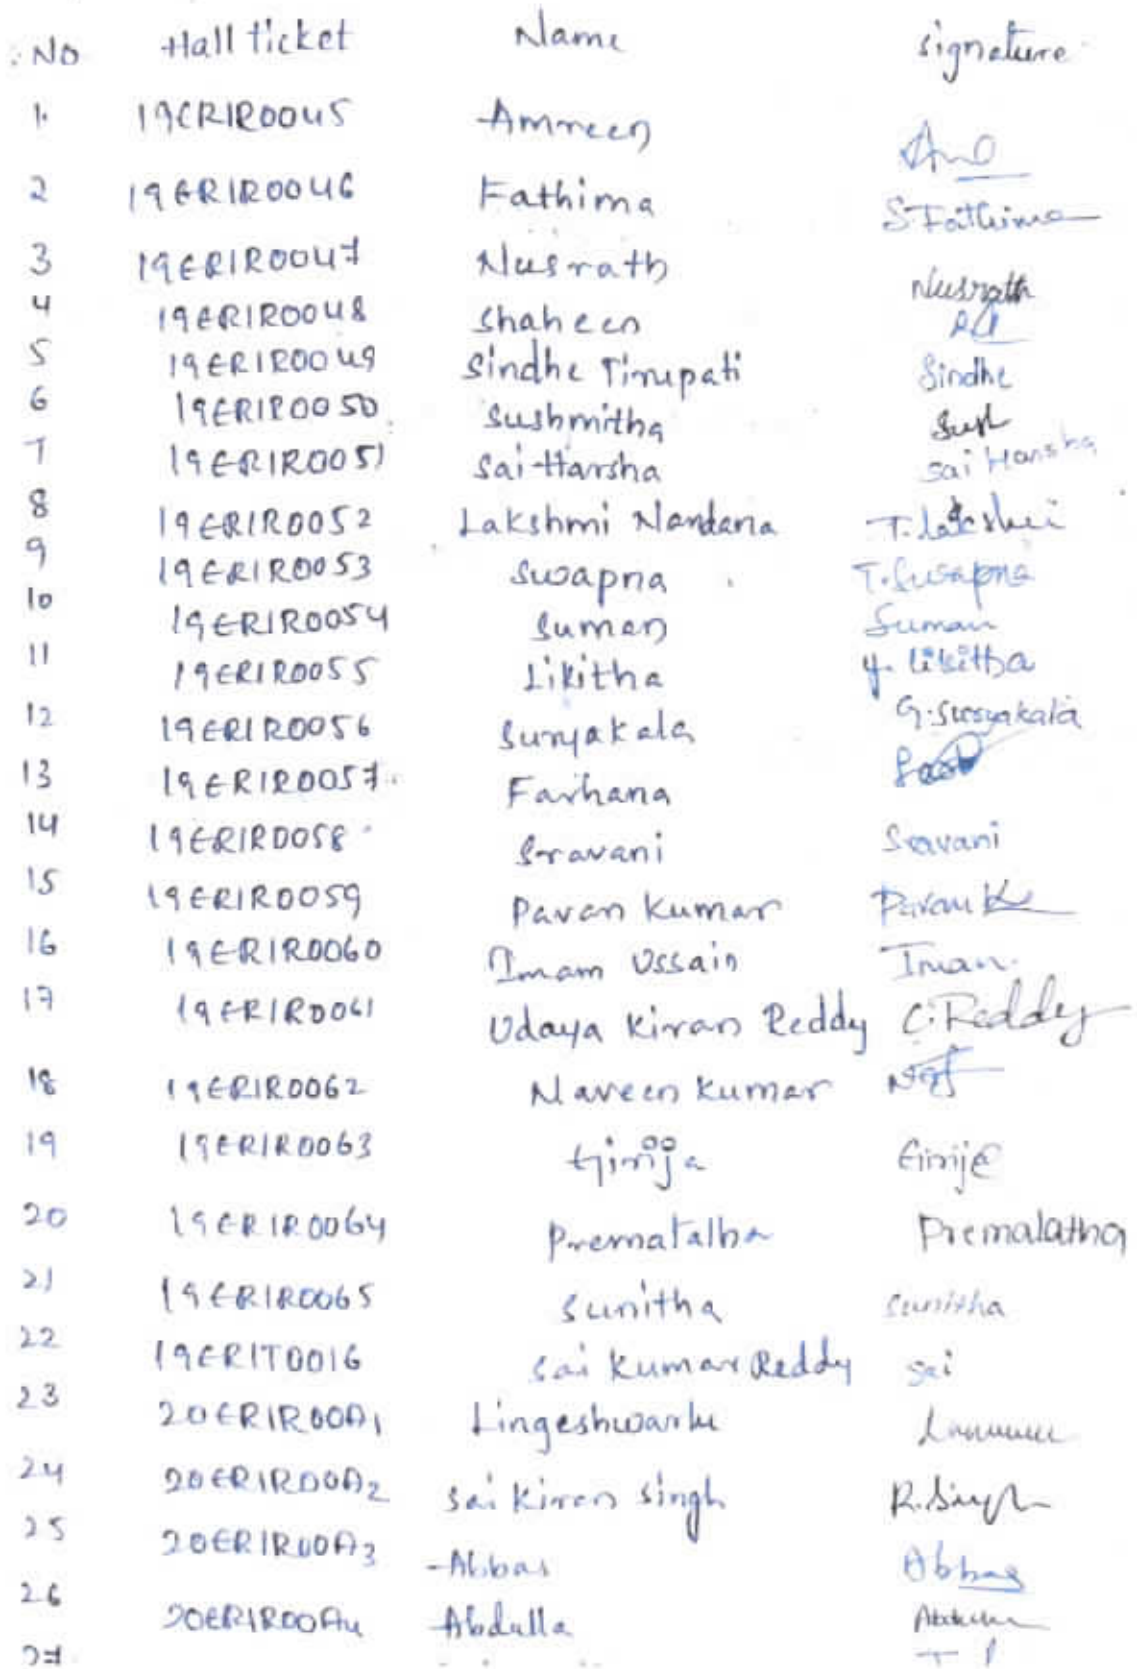 No Hall ticket Name signature
1. 19ERIR0045 Amreen
2 19ERIR0046 Fathima S.Fathima
3 19ERIR0047 Nusrath Nusrath
4 19ERIR0048 Shaheen
5 19ERIR0049 Sindhe Tirupati Sindhe
6 19ERIR0050 Sushmitha Sush
7 19ERIR0051 Sai-Harsha Sai Harsha
8 19ERIR0052 Lakshmi Nandana T.Lakshmi
9 19ERIR0053 Swapna T.Swapna
10 19ERIR0054 Suman Suman
11 19ERIR0055 Likitha Y. Likitha
12 19ERIR0056 Suryakala G.Suryakala
13 19ERIR0057 Farhana
14 19ERIR0058 Sravani Sravani
15 19ERIR0059 Pavan Kumar Pavan K
16 19ERIR0060 Imam Ussain Imam.
17 19ERIR0061 Udaya Kiran Reddy C.Reddy
18 19ERIR0062 Naveen Kumar
19 19ERIR0063 Girija Girija
20 19ERIR0064 Prematalha Premalatha
21 19ERIR0065 Sunitha Sunitha
22 19ERIT0016 Sai Kumar Reddy Sai
23 20ERIR00A1 Lingeshwarlu
24 20ERIR00A2 Sai Kiran Singh R.Singh
25 20ERIR00A3 Abbas Abbas
26 20ERIR00A4 Abdulla Abdulla
27